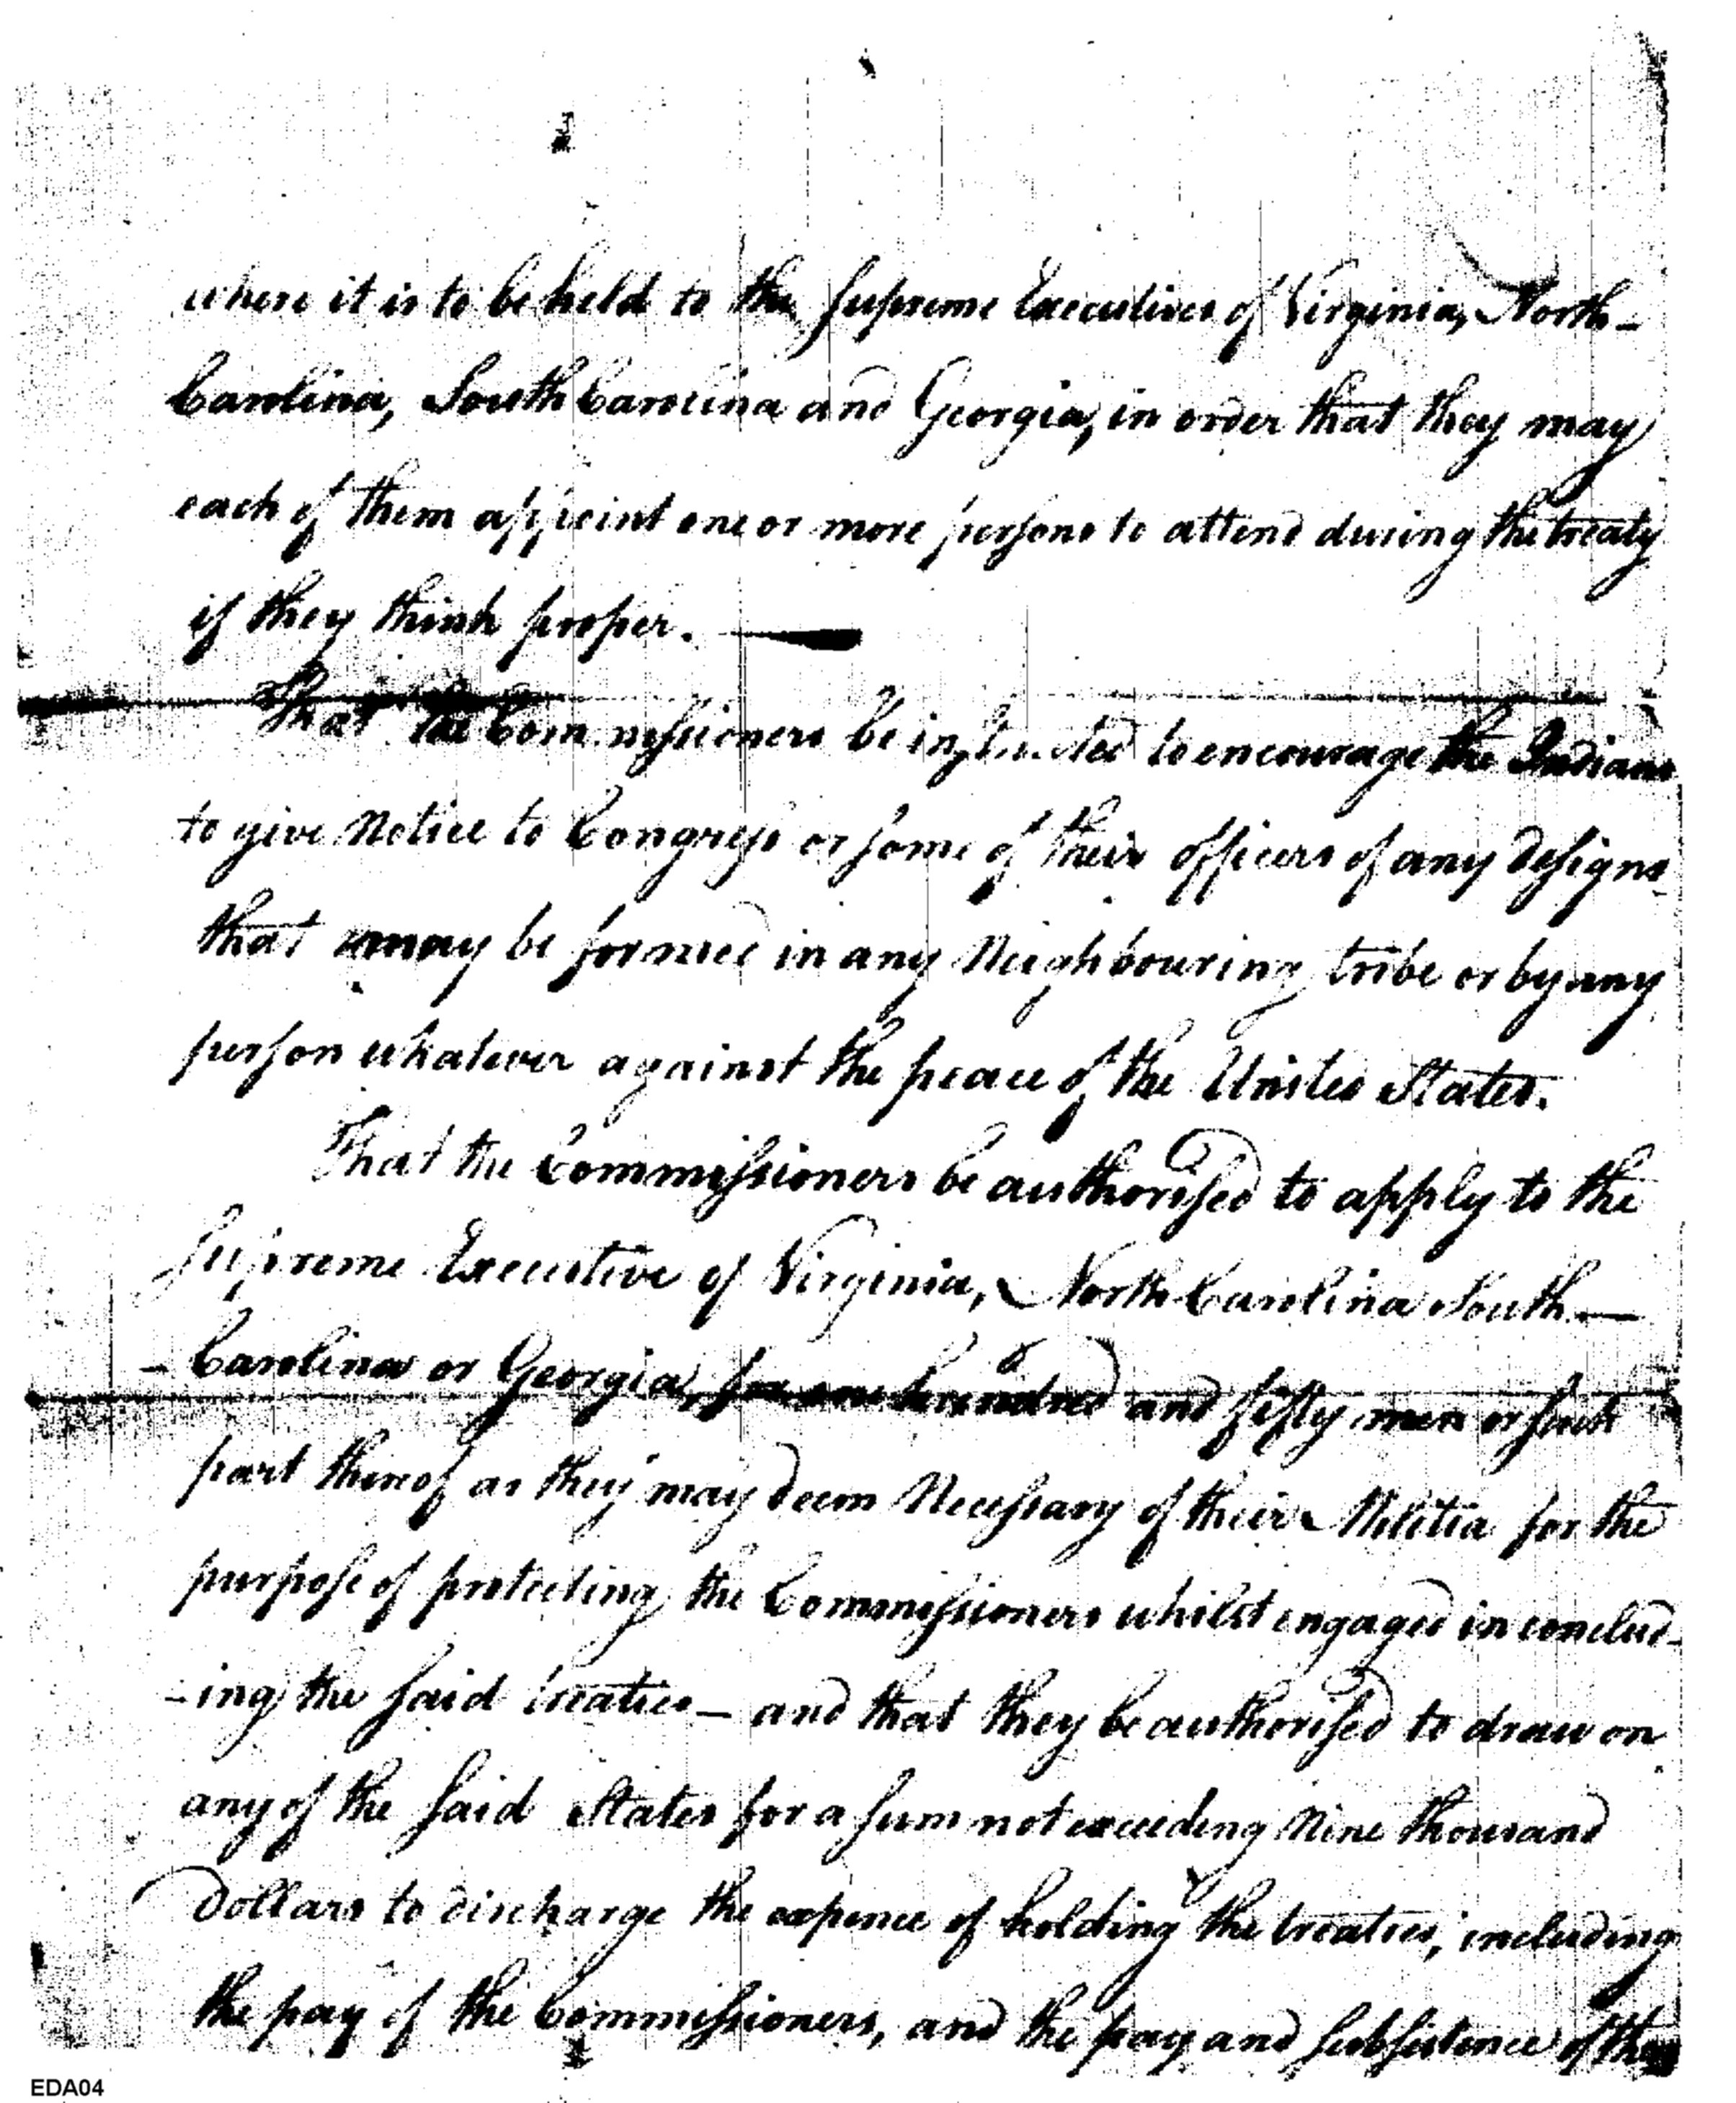 where it is to be held to the Supreme Executives of Virginia, North-
Carolina, South Carolina and Georgia, in order that they may
each of them appoint one or more persons to attend during the treaty
if they think proper. —
That the Commissioners be instructed to encourage the Indians
to give Notice to Congress or some of their officers of any designs
that may be formed in any Neighbouring tribe or by any
person whatever against the peace of the United States.
That the Commissioners be authorised to apply to the
Supreme Executive of Virginia, North Carolina South —
- Carolina or Georgia, for one hundred and fifty men or such
part thereof as they may deem Necessary of their Militia for the
purpose of protecting the Commissioners whilst engaged in conclud-
-ing the said treaties — and that they be authorised to draw on
any of the said States for a sum not exceeding Nine thousand
Dollars to discharge the expence of holding the treaties, including
the pay of the Commissioners, and the pay and subsistence of the
EDA04